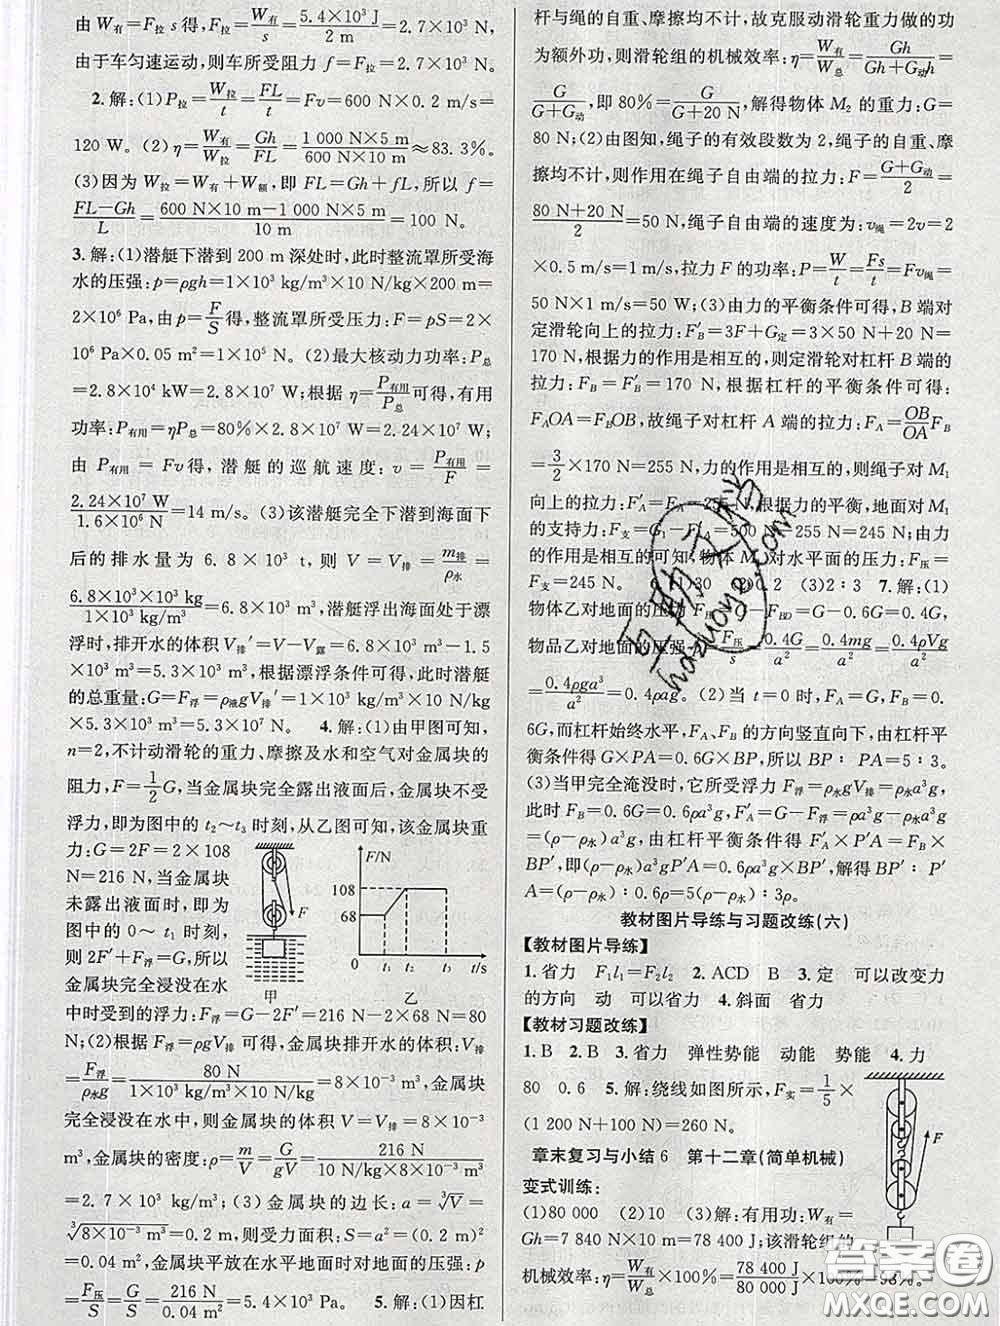 由 W有=F拉 s得,F拉=W有/s=5.4×10³ J/2 m=2.7×10³ N。
由于车匀速运动,则车所受阻力 f=F拉=2.7×10³ N。
2.解:(1)P拉=W拉/t=FL/t=Fv=600 N×0.2 m/s=
120 W。(2)η=W有/W拉=Gh/FL=1 000 N×5 m/600 N×10 m≈83.3%。
(3)因为 W拉=W有+W额,即 FL=Gh+fL,所以 f=
FL-Gh/L=600 N×10 m-1 000 N×5 m/10 m=100 N。
3.解:(1)潜艇下潜到 200 m 深处时,此时整流罩所受海
水的压强:p=ρgh=1×10³ kg/m³×10 N/kg×200 m=
2×10⁶ Pa,由 p=F/S得,整流罩所受压力:F=pS=2×
10⁶ Pa×0.05 m²=1×10⁵ N。(2)最大核动力功率:P总
=2.8×10⁴ kW=2.8×10⁷ W;根据 η=P有用/P总可得,有用
功率:P有用=ηP总=80%×2.8×10⁷ W=2.24×10⁷ W;
由 P有用=Fv得,潜艇的巡航速度:v=P有用/F=
2.24×10⁷ W/1.6×10⁶ N=14 m/s。(3)该潜艇完全下潜到海面下
后的排水量为 6.8×10³ t,则 V=V排=m排/ρ水=
6.8×10³×10³ kg/1×10³ kg/m³=6.8×10³ m³,潜艇浮出海面处于漂
浮时,排开水的体积 V排′=V-V露=6.8×10³ m³-1.5
×10³ m³=5.3×10³ m³,根据漂浮条件可得,此时潜艇
的总重量:G=F浮=ρ液gV排′=1×10³ kg/m³×10 N/kg
×5.3×10³ m³=5.3×10⁷ N。 4.解:(1)由甲图可知,
n=2,不计动滑轮的重力、摩擦及水和空气对金属块的
阻力,F=1/2G,当金属块完全露出液面后,金属块不受
浮力,即为图中的 t₂~t₃ 时刻,从乙图可知,该金属块重
力:G=2F=2×108
N=216 N,当金属块
未露出液面时,即为
图中的 0~t₁ 时刻,
则 2F′+F浮=G,所以
金属块完全浸没在水
F/N
108
68
0 t₁ t₂ t₃ t/s
甲 乙
中时受到的浮力:F浮=G-2F′=216 N-2×68 N=80
N;(2)根据 F浮=ρgV排可得,金属块排开水的体积:V排
=F浮/ρ水g=80 N/1×10³ kg/m³×10 N/kg=8×10⁻³ m³,金属块
完全浸没在水中,则金属块的体积 V=V排=8×10⁻³
m³,金属块的密度:ρ=m/V=G/gV=216 N/10 N/kg×8×10⁻³ m³
=2.7×10³ kg/m³;(3)金属块的边长:a=∛V=
∛8×10⁻³ m³=0.2 m,则受力面积:S=a²=(0.2 m)²
=0.04 m²,金属块平放在水平地面时对地面的压强:p
=F/S=G/S=216 N/0.04 m²=5.4×10³ Pa。 5.解:(1)因杠
杆与绳的自重、摩擦均不计,故克服动滑轮重力做的功
为额外功,则滑轮组的机械效率:η=W有/W总=Gh/Gh+G动h=
G/G+G动,即 80%=G/G+20 N,解得物体 M₂ 的重力:G=
80 N;(2)由图知,绳子的有效段数为 2,绳子的自重、摩
擦均不计,则作用在绳子自由端的拉力:F=G+G动/2=
80 N+20 N/2=50 N,绳子自由端的速度为:v绳=2v=2
×0.5 m/s=1 m/s,拉力 F 的功率:P=W/t=Fs/t=Fv绳=
50 N×1 m/s=50 W;(3)由力的平衡条件可得,B 端对
定滑轮向上的拉力:F′B=3F+G定=3×50 N+20 N=
170 N,根据力的作用是相互的,则定滑轮对杠杆 B 端的
拉力:FB=F′B=170 N,根据杠杆的平衡条件可得:
FAOA=FBOB,故绳子对杠杆 A 端的拉力:FA=OB/OAFB
=3/2×170 N=255 N,力的作用是相互的,则绳子对 M₁
向上的拉力:F′A=FA=255 N,根据力的平衡,地面对 M₁
的支持力:F支=G₁-F′A=500 N-255 N=245 N;由力
的作用是相互的可知,物体 M₁ 对水平面的压力:F压=
F支=245 N。 6.(1)30 (2)0.2 (3)2∶3 7.解:(1)
物体乙对地面的压力 F压=G-FBD=G-0.6G=0.4G,
物品乙对地面的压强 p=F压/s=0.4G/a²=0.4mg/a²=0.4ρVg/a²
=0.4ρga³/a²=0.4ρag。(2)当 t=0 时,FA=G,FB=0.
6G,而杠杆始终水平,FA、FB 的方向竖直向下,由杠杆平
衡条件得 G×PA=0.6G×BP,所以 BP∶PA=5∶3。
(3)当甲完全淹没时,它所受浮力 F浮=ρ水gV排=ρ水a³g,
此时 F′B=0.6G=0.6ρa³g,F′A=G-F浮=ρa³g-ρ水a³g
=(ρ-ρ水)a³g,由杠杆平衡条件得 F′A×P′A=F′B×
BP′,即(ρ-ρ水)a³gP′A=0.6ρa³g×BP′,解得 BP′∶P′
A=(ρ-ρ水)∶0.6ρ=5(ρ-ρ水)∶3ρ。
教材图片导练与习题改练(六)
【教材图片导练】
1.省力 F₁l₁=F₂l₂ 2.ACD B 3.定 可以改变力
的方向 动 可以省力 4.斜面 省力
【教材习题改练】
1.B 2.B 3.省力 弹性势能 动能 势能 4.力
80 0.6 5.解:绕线如图所示,F实=1/5×
(1 200 N+100 N)=260 N。
F
章末复习与小结6 第十二章(简单机械)
变式训练:
(1)80 000 (2)10 (3)解:有用功:W有=
Gh=7 840 N×10 m=78 400 J;该滑轮组的
机械效率:η=W有/W总×100%=78 400 J/80 000 J×100%=98%。
百助文档
hazuoye.com
答案圈
MXQE.COM